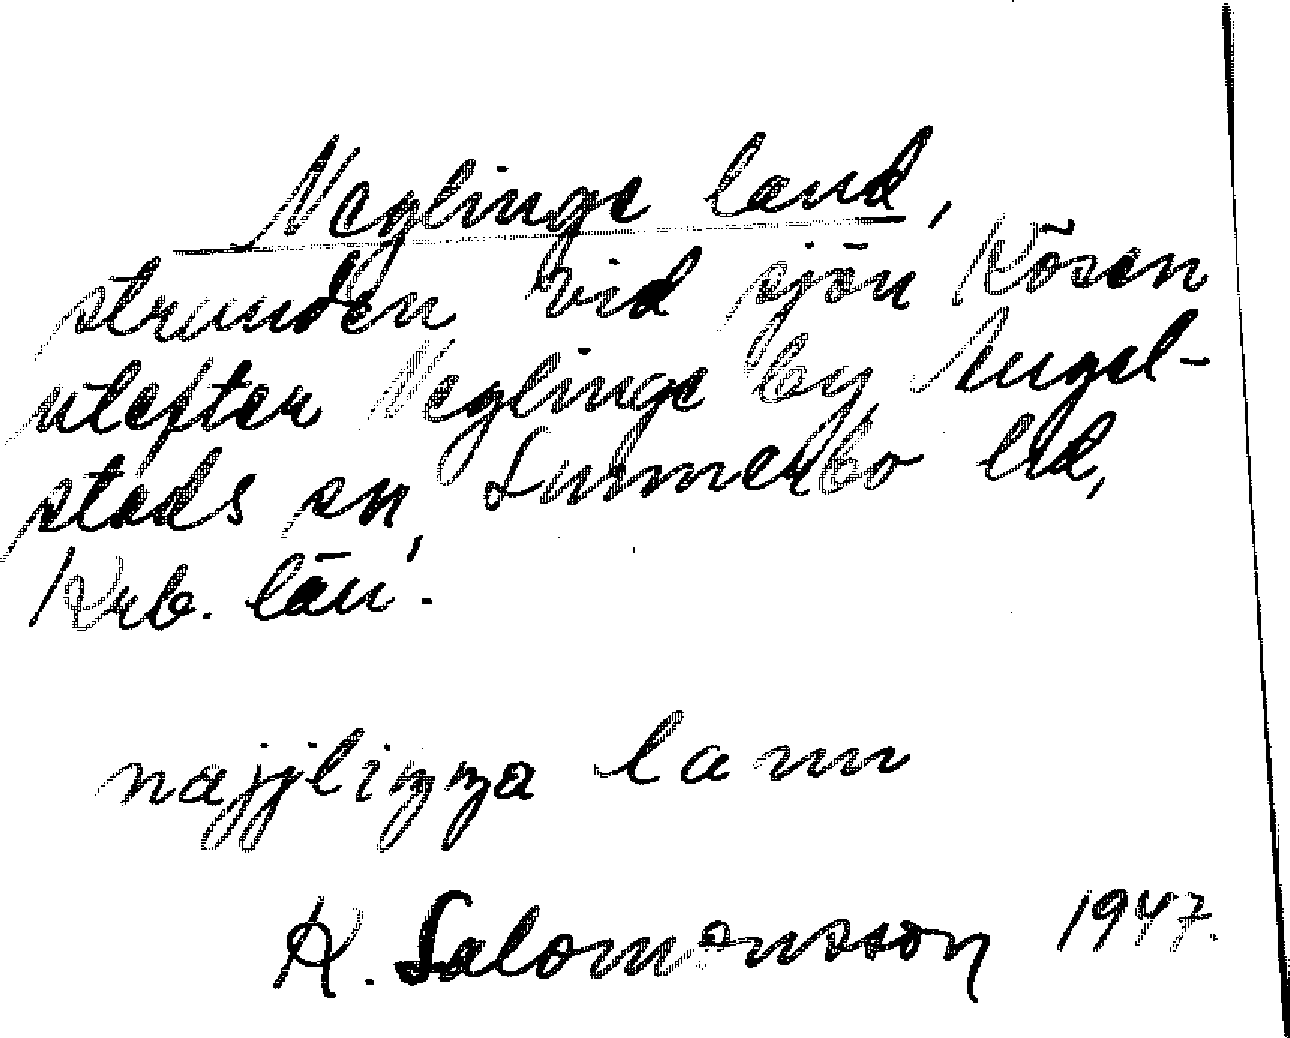 Neglinge land,
stranden vid sjön Kösen
utefter Neglinge by Angel-
stads sn, Sunnerbo hd,
Krb. län.
najjlizza lann
K. Salomonsson 1947.